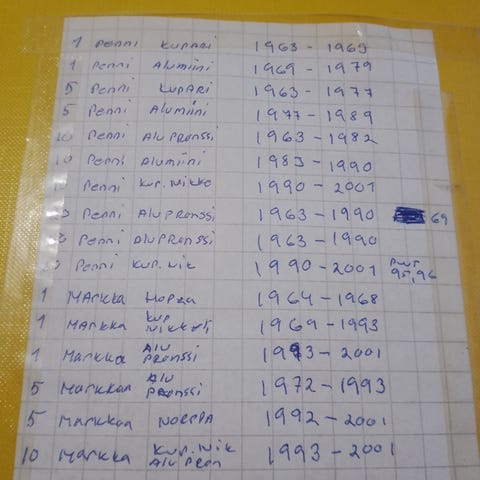 1 Penni KUPARI 1963 - 1969
1 Penni Alumiini 1969 - 1979
5 Penni KUPARI 1963 - 1977
5 Penni Alumiini 1977 - 1989
10 Penni AluPRonssi 1963 - 1982
10 Penni Alumiini 1983 - 1990
Penni KUP. Nikke 1990 - 2001
Penni AluPRonssi 1963 - 1990 69
Penni AluPRonssi 1963 - 1990
Penni KUP. Nik 1990 - 2001 95, 96
1 MARKKA HOPEA 1964 - 1968
1 MARKKA KUP NIKKELI 1969 - 1993
1 MARKKA Alu PRonssi 1993 - 2001
5 MARKKAA Alu PRonssi 1972 - 1993
5 MARKKAA NORPPA 1992 - 2001
10 MARKKA KUP. Nik Alu PRon 1993 - 2001